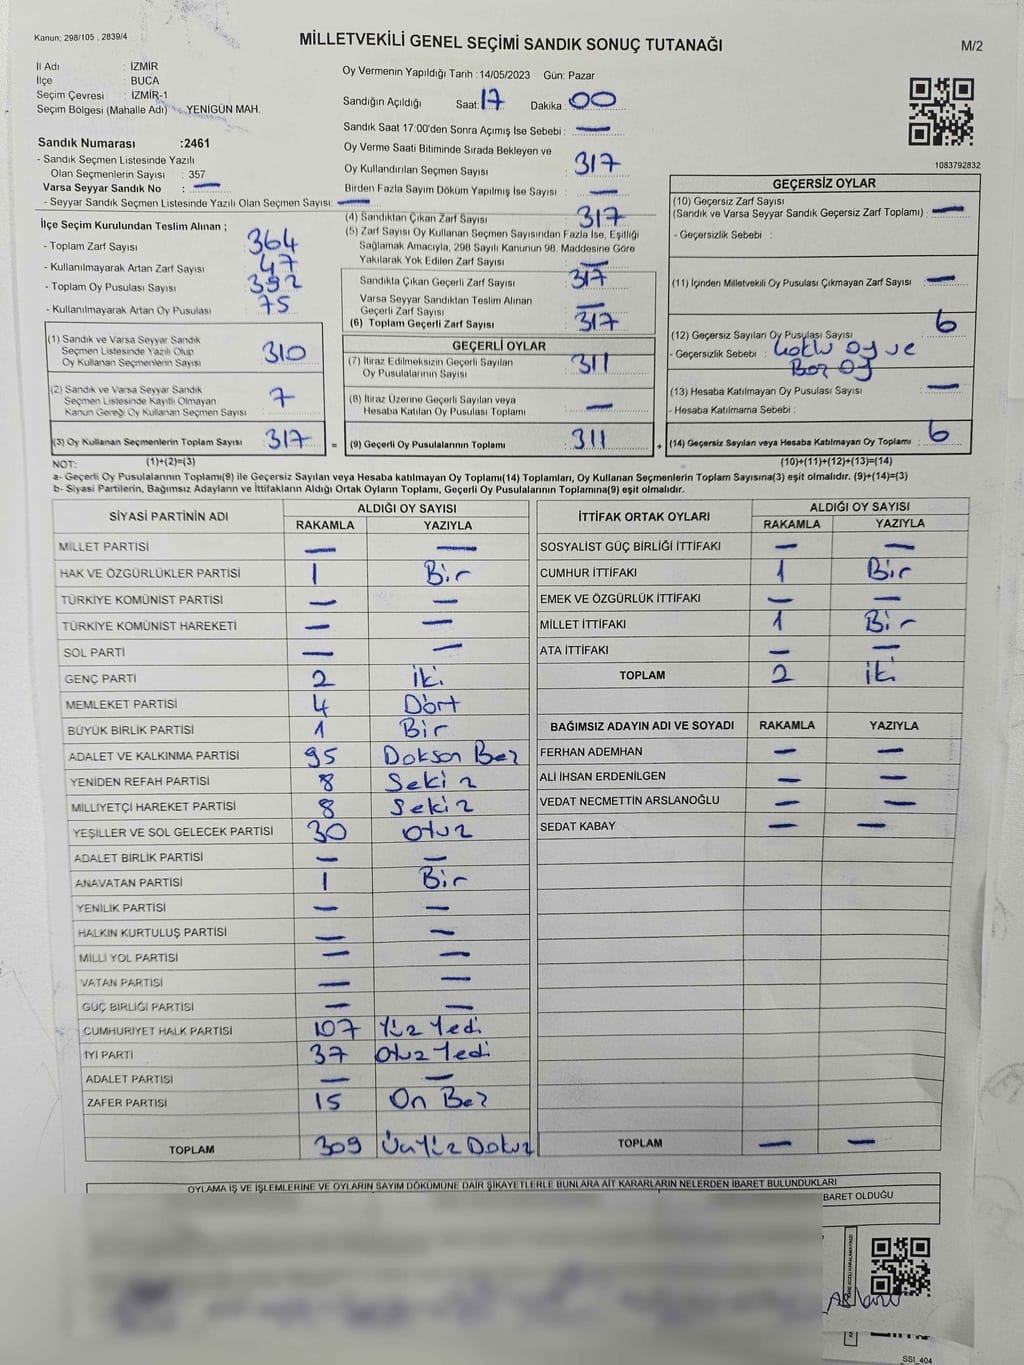 Kanun; 298/105 , 2839/4
MİLLETVEKİLİ GENEL SEÇİMİ SANDIK SONUÇ TUTANAĞI
M/2
İl Adı : İZMİR
İlçe : BUCA
Seçim Çevresi : İZMİR-1
Seçim Bölgesi (Mahalle Adı) : YENİGÜN MAH.
Oy Vermenin Yapıldığı Tarih :14/05/2023 Gün: Pazar
Sandığın Açıldığı Saat: 17 Dakika : 00
Sandık Saat 17:00'den Sonra Açımış İse Sebebi : —
Oy Verme Saati Bitiminde Sırada Bekleyen ve
Oy Kullandırılan Seçmen Sayısı : 317
Birden Fazla Sayım Döküm Yapılmış İse Sayısı : —
1083792832
Sandık Numarası :2461
- Sandık Seçmen Listesinde Yazılı
Olan Seçmenlerin Sayısı : 357
Varsa Seyyar Sandık No : —
- Seyyar Sandık Seçmen Listesinde Yazılı Olan Seçmen Sayısı: —
İlçe Seçim Kurulundan Teslim Alınan ;
- Toplam Zarf Sayısı : 364
- Kullanılmayarak Artan Zarf Sayısı : 47
- Toplam Oy Pusulası Sayısı : 392
- Kullanılmayarak Artan Oy Pusulası : 75
(1) Sandık ve Varsa Seyyar Sandık
Seçmen Listesinde Yazılı Olup
Oy Kullanan Seçmenlerin Sayısı : 310
(2) Sandık ve Varsa Seyyar Sandık
Seçmen Listesinde Kayıtlı Olmayan
Kanun Gereği Oy Kullanan Seçmen Sayısı : 7
(3) Oy Kullanan Seçmenlerin Toplam Sayısı : 317
(4) Sandıktan Çıkan Zarf Sayısı : 317
(5) Zarf Sayısı Oy Kullanan Seçmen Sayısından Fazla İse, Eşitliği
Sağlamak Amacıyla, 298 Sayılı Kanunun 98. Maddesine Göre
Yakılarak Yok Edilen Zarf Sayısı : —
Sandıkla Çıkan Geçerli Zarf Sayısı : 317
Varsa Seyyar Sandıktan Teslim Alınan
Geçerli Zarf Sayısı : —
(6) Toplam Geçerli Zarf Sayısı : 317
GEÇERLİ OYLAR
(7) İtiraz Edilmeksizin Geçerli Sayılan
Oy Pusulalarının Sayısı : 311
(8) İtiraz Üzerine Geçerli Sayılan veya
Hesaba Katılan Oy Pusulası Toplamı : —
= (9) Geçerli Oy Pusulalarının Toplamı : 311 +
GEÇERSİZ OYLAR
(10) Geçersiz Zarf Sayısı
(Sandık ve Varsa Seyyar Sandık Geçersiz Zarf Toplamı) : —
- Geçersizlik Sebebi :
(11) İçinden Milletvekili Oy Pusulası Çıkmayan Zarf Sayısı : —
(12) Geçersiz Sayılan Oy Pusulası Sayısı : 6
- Geçersizlik Sebebi : Çoklu oy ve
Boz oy
(13) Hesaba Katılmayan Oy Pusulası Sayısı : —
- Hesaba Katılmama Sebebi :
(14) Geçersiz Sayılan veya Hesaba Katılmayan Oy Toplamı : 6
NOT: (1)+(2)=(3) (10)+(11)+(12)+(13)=(14)
a- Geçerli Oy Pusulalarının Toplamı(9) ile Geçersiz Sayılan veya Hesaba katılmayan Oy Toplamı(14) Toplamları, Oy Kullanan Seçmenlerin Toplam Sayısına(3) eşit olmalıdır. (9)+(14)=(3)
b- Siyasi Partilerin, Bağımsız Adayların ve İttifakların Aldığı Ortak Oyların Toplamı, Geçerli Oy Pusulalarının Toplamına(9) eşit olmalıdır.
SİYASİ PARTİNİN ADI ALDIĞI OY SAYISI
RAKAMLA YAZIYLA
MİLLET PARTİSİ — —
HAK VE ÖZGÜRLÜKLER PARTİSİ 1 Bir
TÜRKİYE KOMÜNİST PARTİSİ — —
TÜRKİYE KOMÜNİST HAREKETİ — —
SOL PARTİ — —
GENÇ PARTİ 2 iki
MEMLEKET PARTİSİ 4 Dört
BÜYÜK BİRLİK PARTİSİ 1 Bir
ADALET VE KALKINMA PARTİSİ 95 Doksan Beş
YENİDEN REFAH PARTİSİ 8 Sekiz
MİLLİYETÇİ HAREKET PARTİSİ 8 Sekiz
YEŞİLLER VE SOL GELECEK PARTİSİ 30 otuz
ADALET BİRLİK PARTİSİ — —
ANAVATAN PARTİSİ 1 Bir
YENİLİK PARTİSİ — —
HALKIN KURTULUŞ PARTİSİ — —
MİLLİ YOL PARTİSİ — —
VATAN PARTİSİ — —
GÜÇ BİRLİĞİ PARTİSİ — —
CUMHURİYET HALK PARTİSİ 107 Yüz Yedi
İYİ PARTİ 37 Otuz Yedi
ADALET PARTİSİ — —
ZAFER PARTİSİ 15 On Beş
TOPLAM 309 Üç Yüz Dokuz
İTTİFAK ORTAK OYLARI ALDIĞI OY SAYISI
RAKAMLA YAZIYLA
SOSYALİST GÜÇ BİRLİĞİ İTTİFAKI — —
CUMHUR İTTİFAKI 1 Bir
EMEK VE ÖZGÜRLÜK İTTİFAKI — —
MİLLET İTTİFAKI 1 Bir
ATA İTTİFAKI — —
TOPLAM 2 iki
BAĞIMSIZ ADAYIN ADI VE SOYADI RAKAMLA YAZIYLA
FERHAN ADEMHAN — —
ALİ İHSAN ERDENİLGEN — —
VEDAT NECMETTİN ARSLANOĞLU — —
SEDAT KABAY — —
TOPLAM — —
OYLAMA İŞ VE İŞLEMLERİNE VE OYLARIN SAYIM DÖKÜMÜNE DAİR ŞİKAYETLERLE BUNLARA AİT KARARLARIN NELERDEN İBARET BULUNDUKLARI
BARET OLDUĞU
SSI_404